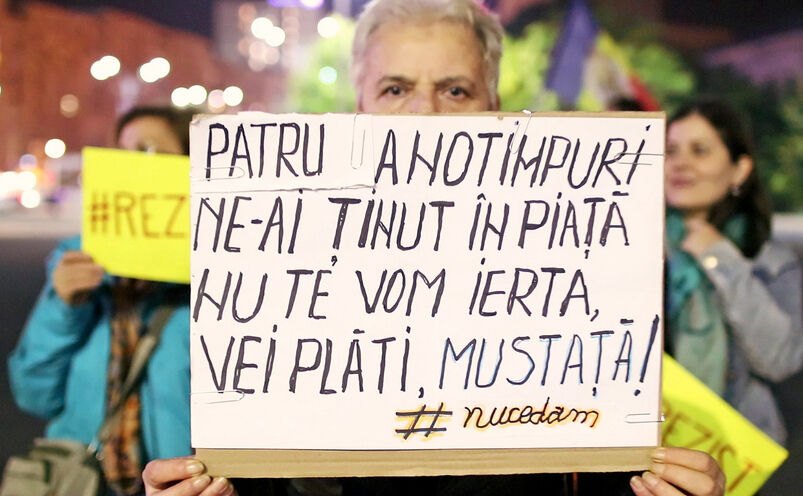 PATRU ANOTIMPURI
NE-AI ȚINUT ÎN PIAȚĂ
NU TE VOM IERTA,
VEI PLĂTI, MUSTAȚĂ!
#nucedăm
#REZ
REZIST